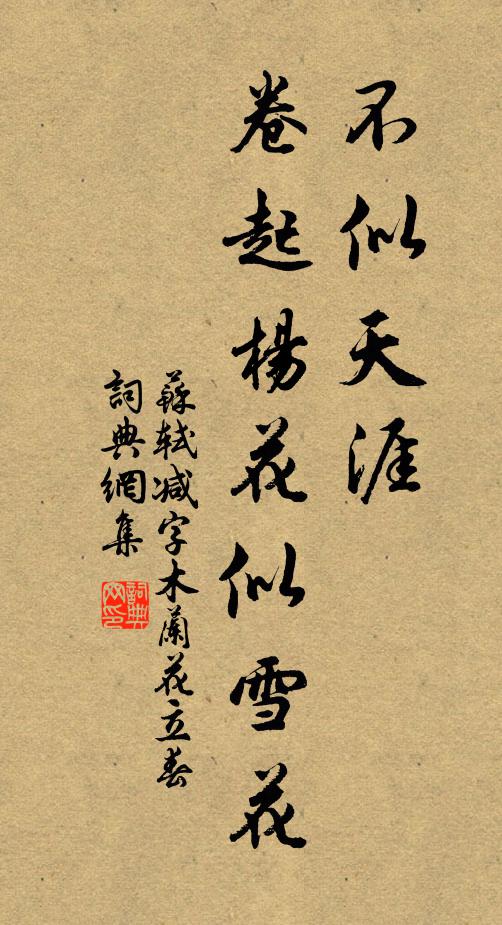 不似天涯
卷起楊花似雪花
蘇軾减字木蘭花立春
詞典網集
詞典網印